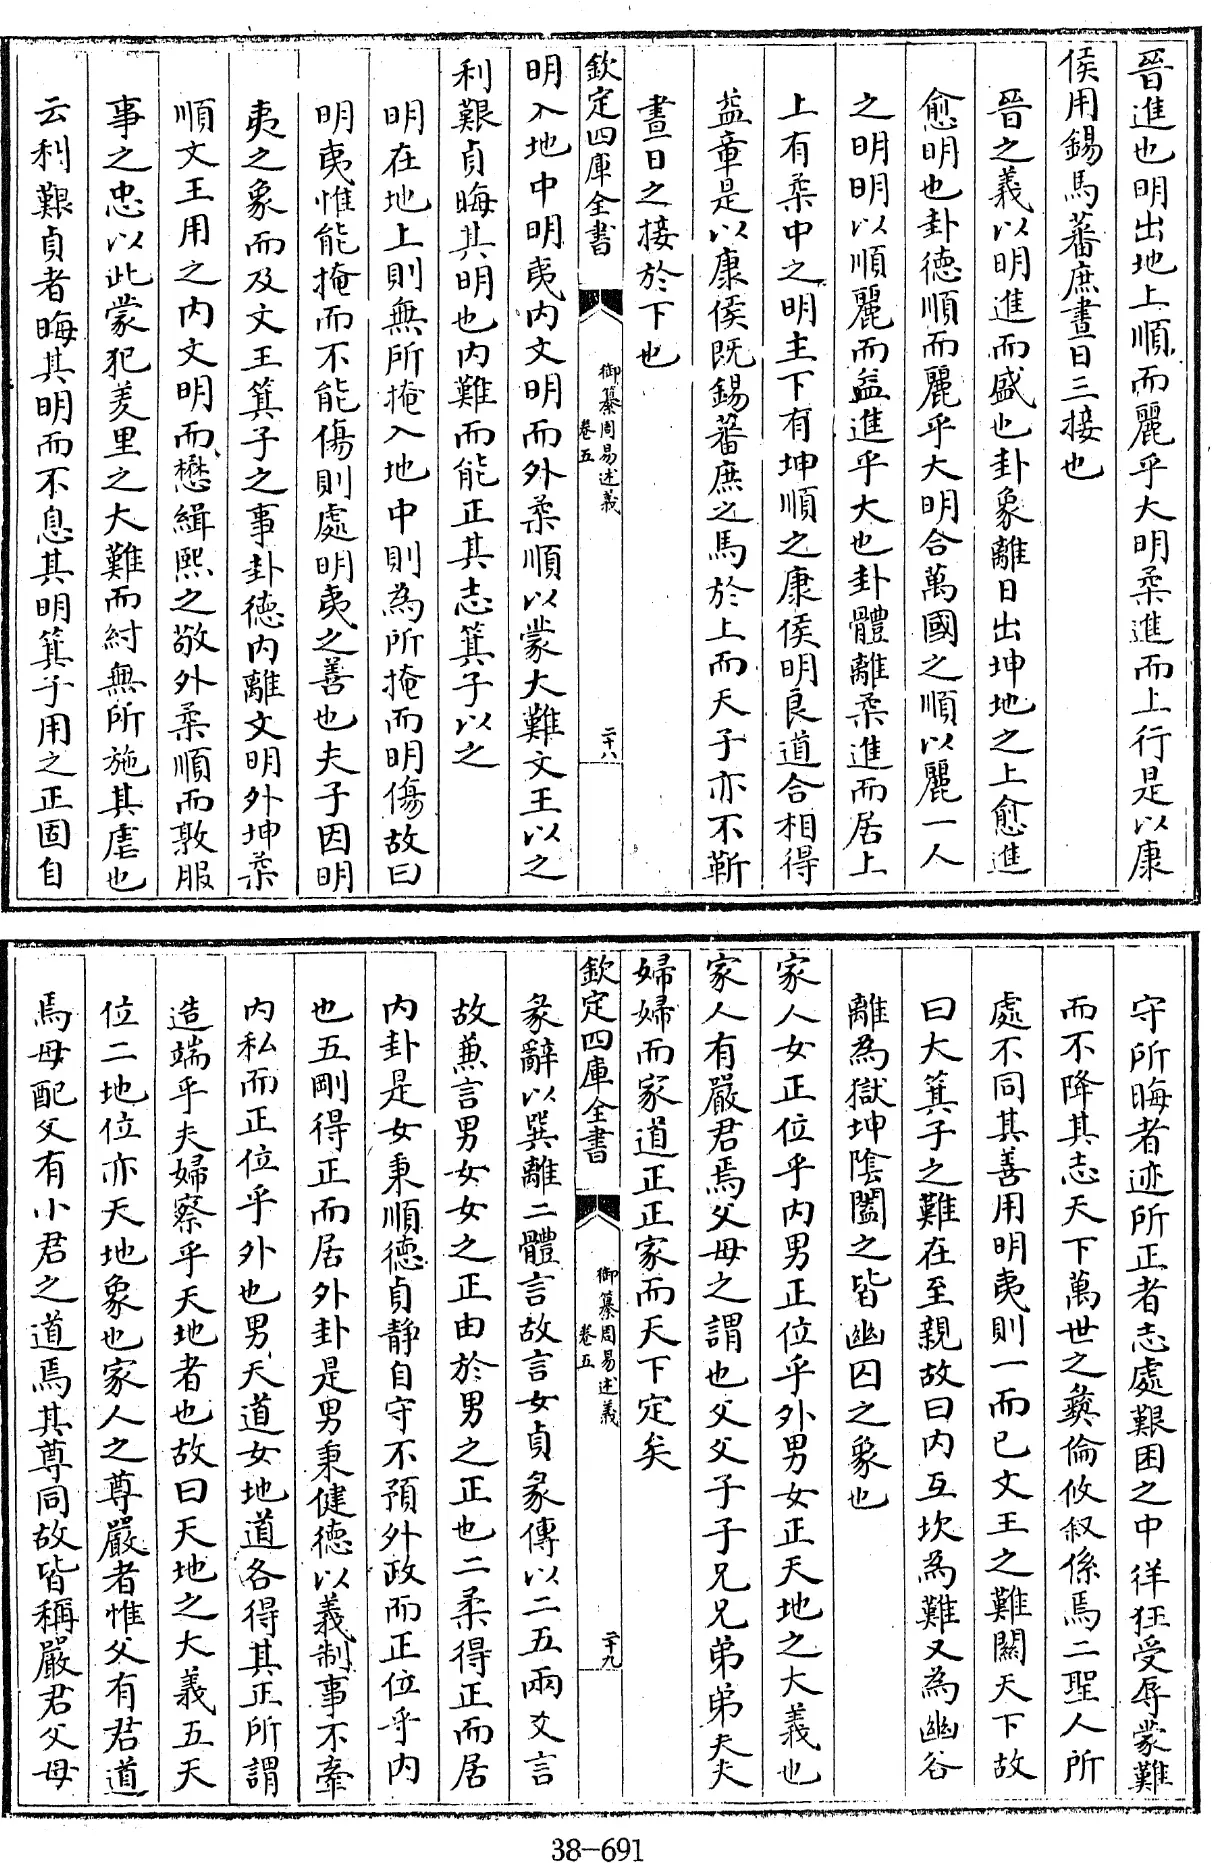 晉進也明出地上順而麗乎大明柔進而上行是以康
侯用錫馬蕃庶晝日三接也
晉之義以明進而盛也卦象離日出坤地之上愈進
愈明也卦德順而麗乎大明合萬國之順以麗一人
之明明以順麗而益進乎大也卦體離柔進而居上
上有柔中之明主下有坤順之康侯明良道合相得
益章是以康侯既錫蕃庶之馬於上而天子亦不靳
晝日之接於下也
欽定四庫全書
御纂周易述義
卷五
二十八
明入地中明夷内文明而外柔順以蒙大難文王以之
利艱貞晦其明也内難而能正其志箕子以之
明在地上則無所掩入地中則為所掩而明傷故曰
明夷惟能掩而不能傷則處明夷之善也夫子因明
夷之象而及文王箕子之事卦德内離文明外坤柔
順文王用之内文明而懋緝熙之敬外柔順而敦服
事之忠以此蒙犯羑里之大難而紂無所施其虐也
云利艱貞者晦其明而不息其明箕子用之正固自
守所晦者迹所正者志處艱困之中佯狂受辱蒙難
而不降其志天下萬世之彝倫攸叙係焉二聖人所
處不同其善用明夷則一而已文王之難關天下故
曰大箕子之難在至親故曰内互坎為難又為幽谷
離為獄坤陰闔之皆幽囚之象也
家人女正位乎内男正位乎外男女正天地之大義也
家人有嚴君焉父母之謂也父父子子兄兄弟弟夫夫
婦婦而家道正正家而天下定矣
欽定四庫全書
御纂周易述義
卷五
二十九
彖辭以巽離二體言故言女貞彖傳以二五兩爻言
故兼言男女女之正由於男之正也二柔得正而居
内卦是女秉順德貞靜自守不預外政而正位乎内
也五剛得正而居外卦是男秉健德以義制事不牽
内私而正位乎外也男天道女地道各得其正所謂
造端乎夫婦察乎天地者也故曰天地之大義五天
位二地位亦天地象也家人之尊嚴者惟父有君道
焉母配父有小君之道焉其尊同故皆稱嚴君父母
38-691